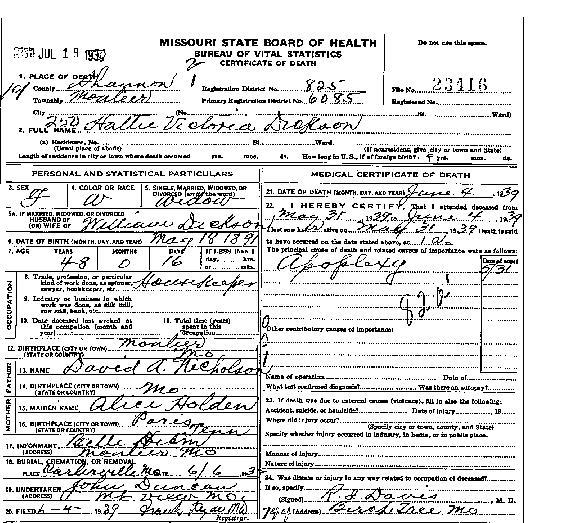 JUL 19 1939
MISSOURI STATE BOARD OF HEALTH
BUREAU OF VITAL STATISTICS
CERTIFICATE OF DEATH
Do not use this space.
1. PLACE OF DEATH
County Shannon
Registration District No. 825
File No. 23416
Township Montier
Primary Registration District No. 6085
Registered No.
City
(No.
St.
Ward)
2. FULL NAME Hattie Victoria Dickson
(a) Residence, No.
St.
Ward.
(Usual place of abode)
(If nonresident, give city or town and State)
Length of residence in city or town where death occurred yrs. mos. ds. How long in U.S., if of foreign birth? yrs. mos. ds.
PERSONAL AND STATISTICAL PARTICULARS
3. SEX F
4. COLOR OR RACE W
5. SINGLE, MARRIED, WIDOWED, OR DIVORCED (write the word) Widow
5a. IF MARRIED, WIDOWED, OR DIVORCED
HUSBAND OF
(OR) WIFE OF William Dickson
6. DATE OF BIRTH (MONTH, DAY, AND YEAR) May 18 1891
7. AGE YEARS MONTHS DAYS
48 0 16
OCCUPATION
8. Trade, profession, or particular kind of work done, as spinner, sawyer, bookkeeper, etc. Housekeeper
9. Industry or business in which work was done, as silk mill, saw mill, bank, etc.
10. Date deceased last worked at this occupation (month and year)
11. Total time (years) spent in this occupation
12. BIRTHPLACE (CITY OR TOWN) Montier
(STATE OR COUNTRY) Mo
FATHER
13. NAME David A. Nicholson
14. BIRTHPLACE (CITY OR TOWN)
(STATE OR COUNTRY) Mo
MOTHER
15. MAIDEN NAME Alice Holden
16. BIRTHPLACE (CITY OR TOWN) Paris
(STATE OR COUNTRY) Tenn
17. INFORMANT Belle
Montier Mo
18. BURIAL, CREMATION, OR REMOVAL
PLACE Mo 6/6
19. UNDERTAKER John Duncan
Mt View Mo.
20. FILED 6-4-1939
Registrar.
MEDICAL CERTIFICATE OF DEATH
21. DATE OF DEATH (MONTH, DAY, AND YEAR) June 4 1939
22. I HEREBY CERTIFY, That I attended deceased from
May 31 1939, to June 4 1939
I last saw alive on May 31 1939, death is said
to have occurred on the date stated above, at
The principal cause of death and related causes of importance were as follows:
Apoplexy
Date of onset
5/31
Other contributory causes of importance:
Name of operation
Date of
What test confirmed diagnosis?
Was there an autopsy?
23. If death was due to external causes (violence), fill in also the following:
Accident, suicide, or homicide?
Date of injury
19
Where did injury occur?
(Specify city or town, county, and State)
Specify whether injury occurred in industry, in home, or in public place.
Manner of injury
Nature of injury
24. Was disease or injury in any way related to occupation of deceased?
If so, specify
(Signed) Davis M. D.
(Address) Birch Tree Mo